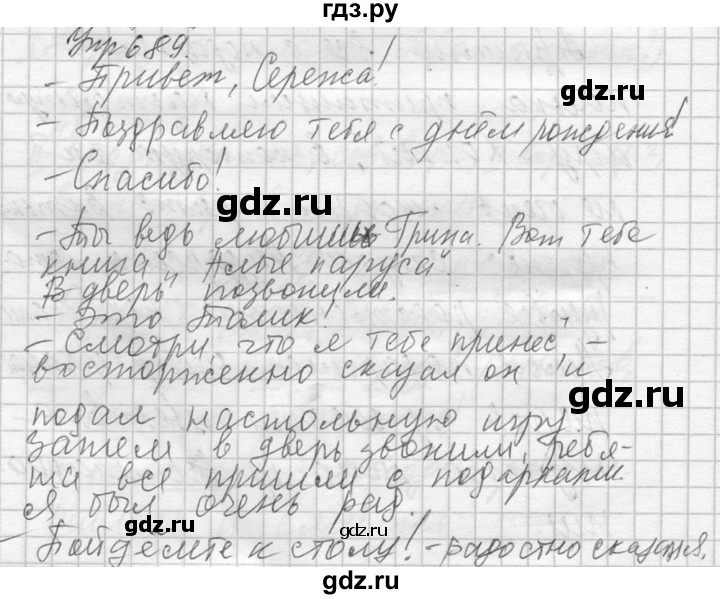 гдз.ру
Упр 689.
- Привет, Сережа!
- Поздравляю тебя с днём рождения!
- Спасибо!
gdz.ru
- Ты ведь любишь Грина. Вот тебе
книга „Алые паруса".
В дверь позвонули.
gdz.ru
- Это Толик!
- Смотри, что я тебе принес, -
восторженно сказал он и
gdz.ru
подал настольную игру.
Затем в дверь звонили, ребя-
та все пришли с подарками.
gdz.ru
Я был очень рад.
gdz.ru
gdz.ru
- Пойдёмте к столу! - радостно сказал я.
gdz.ru